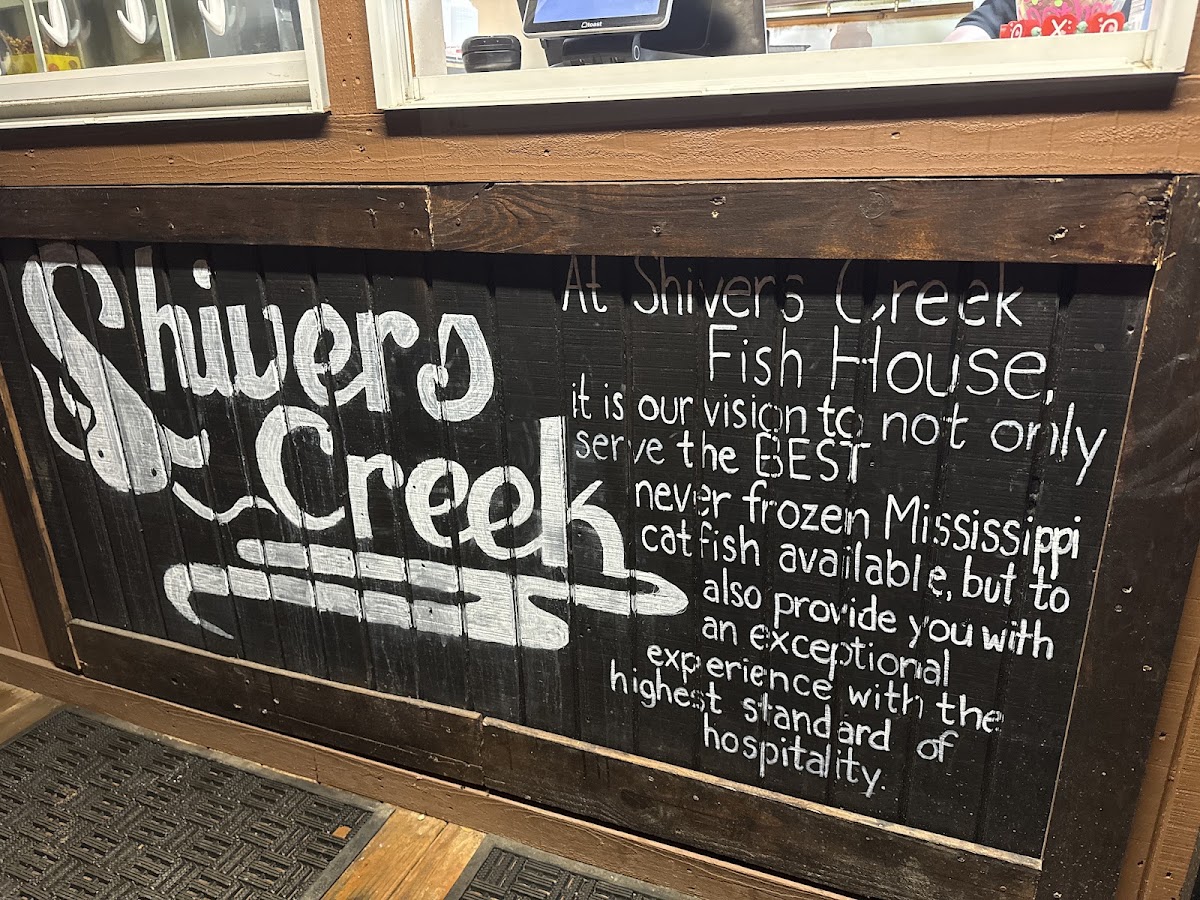 toast
Shivers
Creek
At Shivers Creek
Fish House,
it is our vision to not only
serve the BEST
never frozen Mississippi
catfish available, but to
also provide you with
an exceptional
experience with the
highest standard of
hospitality.